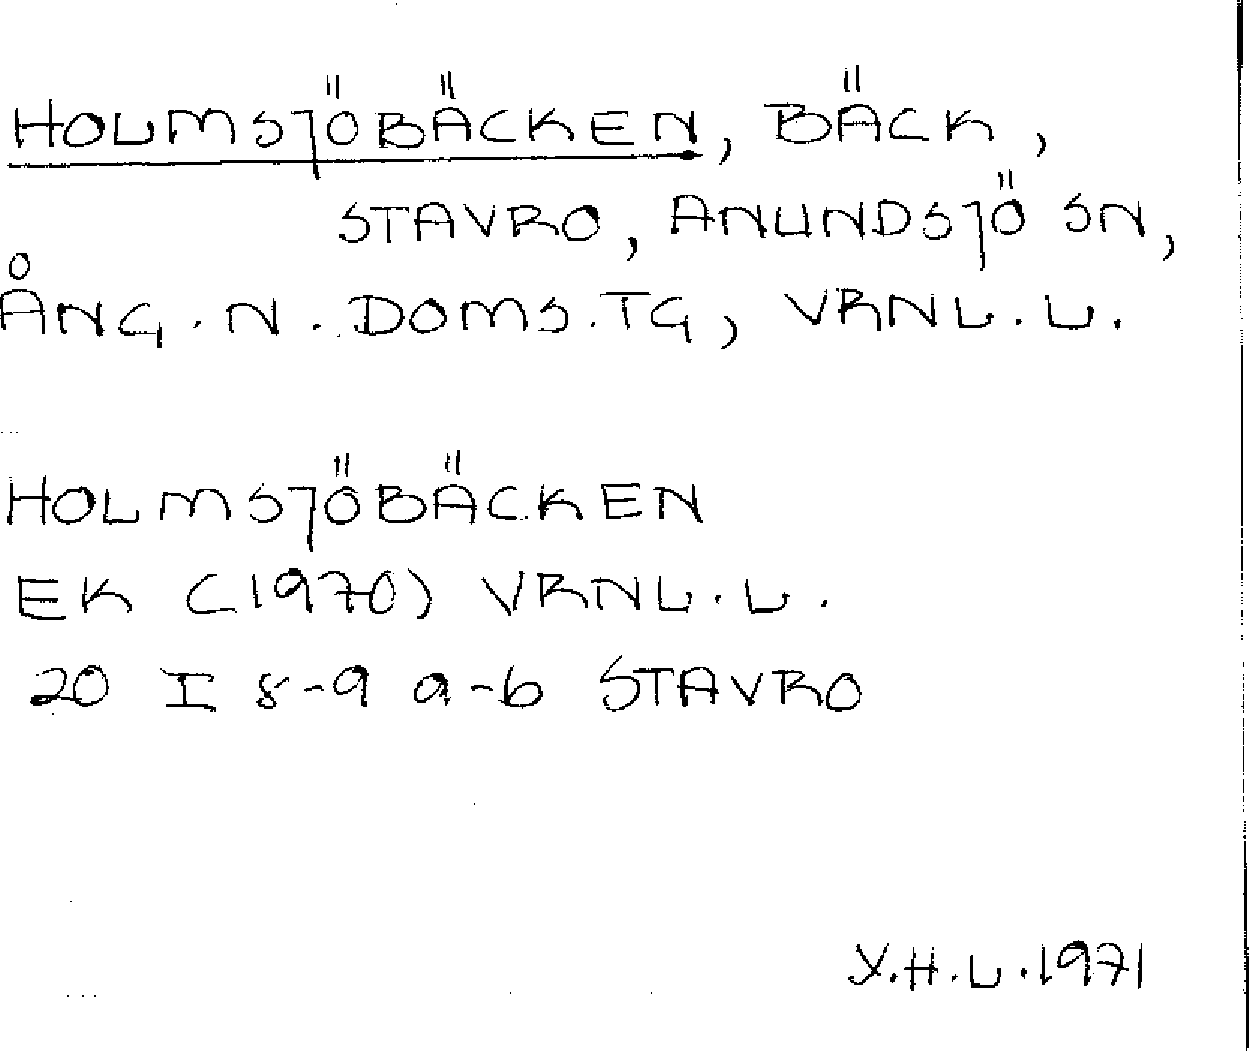 HOLMSJÖBÄCKEN, BÄCK,
STAVRO, ANUNDSJÖ SN,
ÅNG. N. DOMS.TG, VRNL.L.
HOLMSJÖBÄCKEN
EK (1970) VRNL.L.
20 I 8-9 a-b STAVRO
Y.H.L.1971